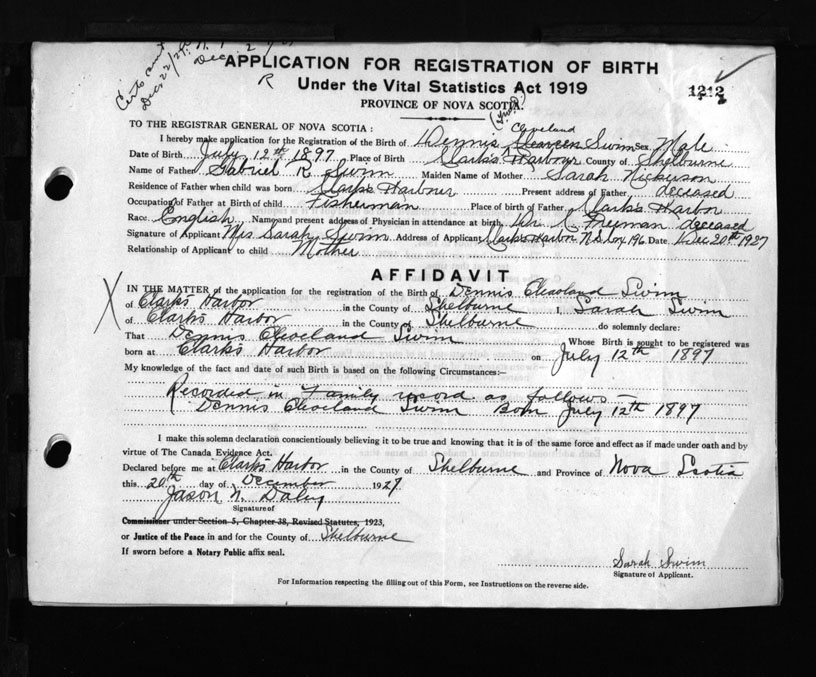 Certs cant
Dec 22/27
Dec. 2
R
APPLICATION FOR REGISTRATION OF BIRTH
Under the Vital Statistics Act 1919
1212
PROVINCE OF NOVA SCOTIA.
TO THE REGISTRAR GENERAL OF NOVA SCOTIA :
Cleveland
I hereby make application for the Registration of the Birth of Dennis Swim Sex Male
Date of Birth July 12th 1897 Place of Birth Clarks Harbour County of Shelburne
Name of Father Gabriel R Swim Maiden Name of Mother Sarah Nickerson
Residence of Father when child was born Clarks Harbour Present address of Father deceased
Occupation of Father at Birth of child Fisherman Place of birth of Father Clarks Harbor
Race English Name and present address of Physician in attendance at birth Dr Freeman deceased
Signature of Applicant Mrs Sarah Swim Address of Applicant Clarks Harbor N.S. box 196 Date Dec 20th 1927
Relationship of Applicant to child Mother
AFFIDAVIT
X
IN THE MATTER of the application for the registration of the Birth of Dennis Cleaveland Swim
of Clarks Harbor in the County of Shelburne I, Sarah Swim
of Clarks Harbor in the County of Shelburne do solemnly declare:
That Dennis Cleaveland Swim Whose Birth is sought to be registered was
born at Clarks Harbor on July 12th 1897
My knowledge of the fact and date of such Birth is based on the following Circumstances:—
Recorded in Family record as follows —
Dennis Cleaveland Swim Born July 12th 1897
I make this solemn declaration conscientiously believing it to be true and knowing that it is of the same force and effect as if made under oath and by
virtue of The Canada Evidence Act.
Declared before me at Clarks Harbor in the County of Shelburne and Province of Nova Scotia
this 20th day of December 1927
Jason N. Daley
Signature of
Commissioner under Section 5, Chapter 38, Revised Statutes, 1923,
or Justice of the Peace in and for the County of Shelburne
If sworn before a Notary Public affix seal.
Sarah Swim
Signature of Applicant.
For Information respecting the filling out of this Form, see Instructions on the reverse side.